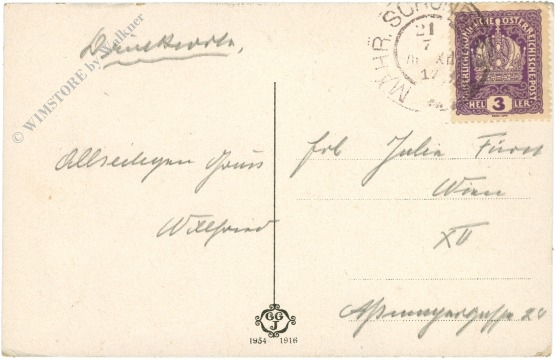 Drucksache.
© WIMSTORE by Falkner
MÄHR. SCHÖNBERG
21
7
17
KAISERLICHE KÖNIGLICHE ÖSTERREICHISCHE POST
3
HELLER
Allseitigen Gruss
Wilfried
Frl. Julie Fürst
Wien
XII
Assmayergasse 24
GG
J
1954 1916